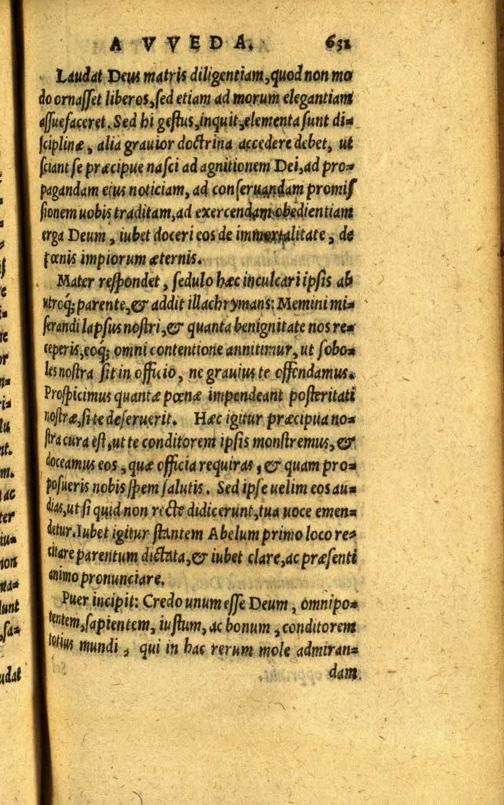 A VVEDA. 631
Laudat Deus matris diligentiam, quod non mo
do ornasset liberos, sed etiam ad morum elegantiam
assuefaceret. Sed hi gestus, inquit, elementa sunt di=
sciplinæ, alia grauior doctrina accedere debet, ut
sciant se præcipue nasci ad agnitionem Dei, ad pro=
pagandam eius noticiam, ad conseruandam promis
sionem uobis traditam, ad exercendam obedientiam
erga Deum, iubet doceri eos de immortalitate, de
pœnis impiorum æternis.
Mater respondet, sedulo hæc inculcari ipsis ab
utroq; parente, & addit illachrymans: Memini mi=
serandi lapsus nostri, & quanta benignitate nos re=
ceperis, eoq; omni contentione annitimur, ut sobo=
les nostra sit in officio, ne grauius te offendamus.
Prospicimus quantæ pœnæ impendeant posteritati
nostræ, si te deseruerit. Hæc igitur præcipua no=
stra cura est, ut te conditorem ipsis monstremus, &
doceamus eos, quæ officia requiras, & quam pro=
posueris nobis spem salutis. Sed ipse uelim eos au=
dias, ut si quid non recte didicerunt, tua uoce emen=
detur. Iubet igitur stantem Abelum primo loco re=
citare parentum dictata, & iubet clare, ac præsenti
animo pronunciare.
Puer incipit: Credo unum esse Deum, omnipo=
tentem, sapientem, iustum, ac bonum, conditorem
totius mundi, qui in hac rerum mole admiran=
dam